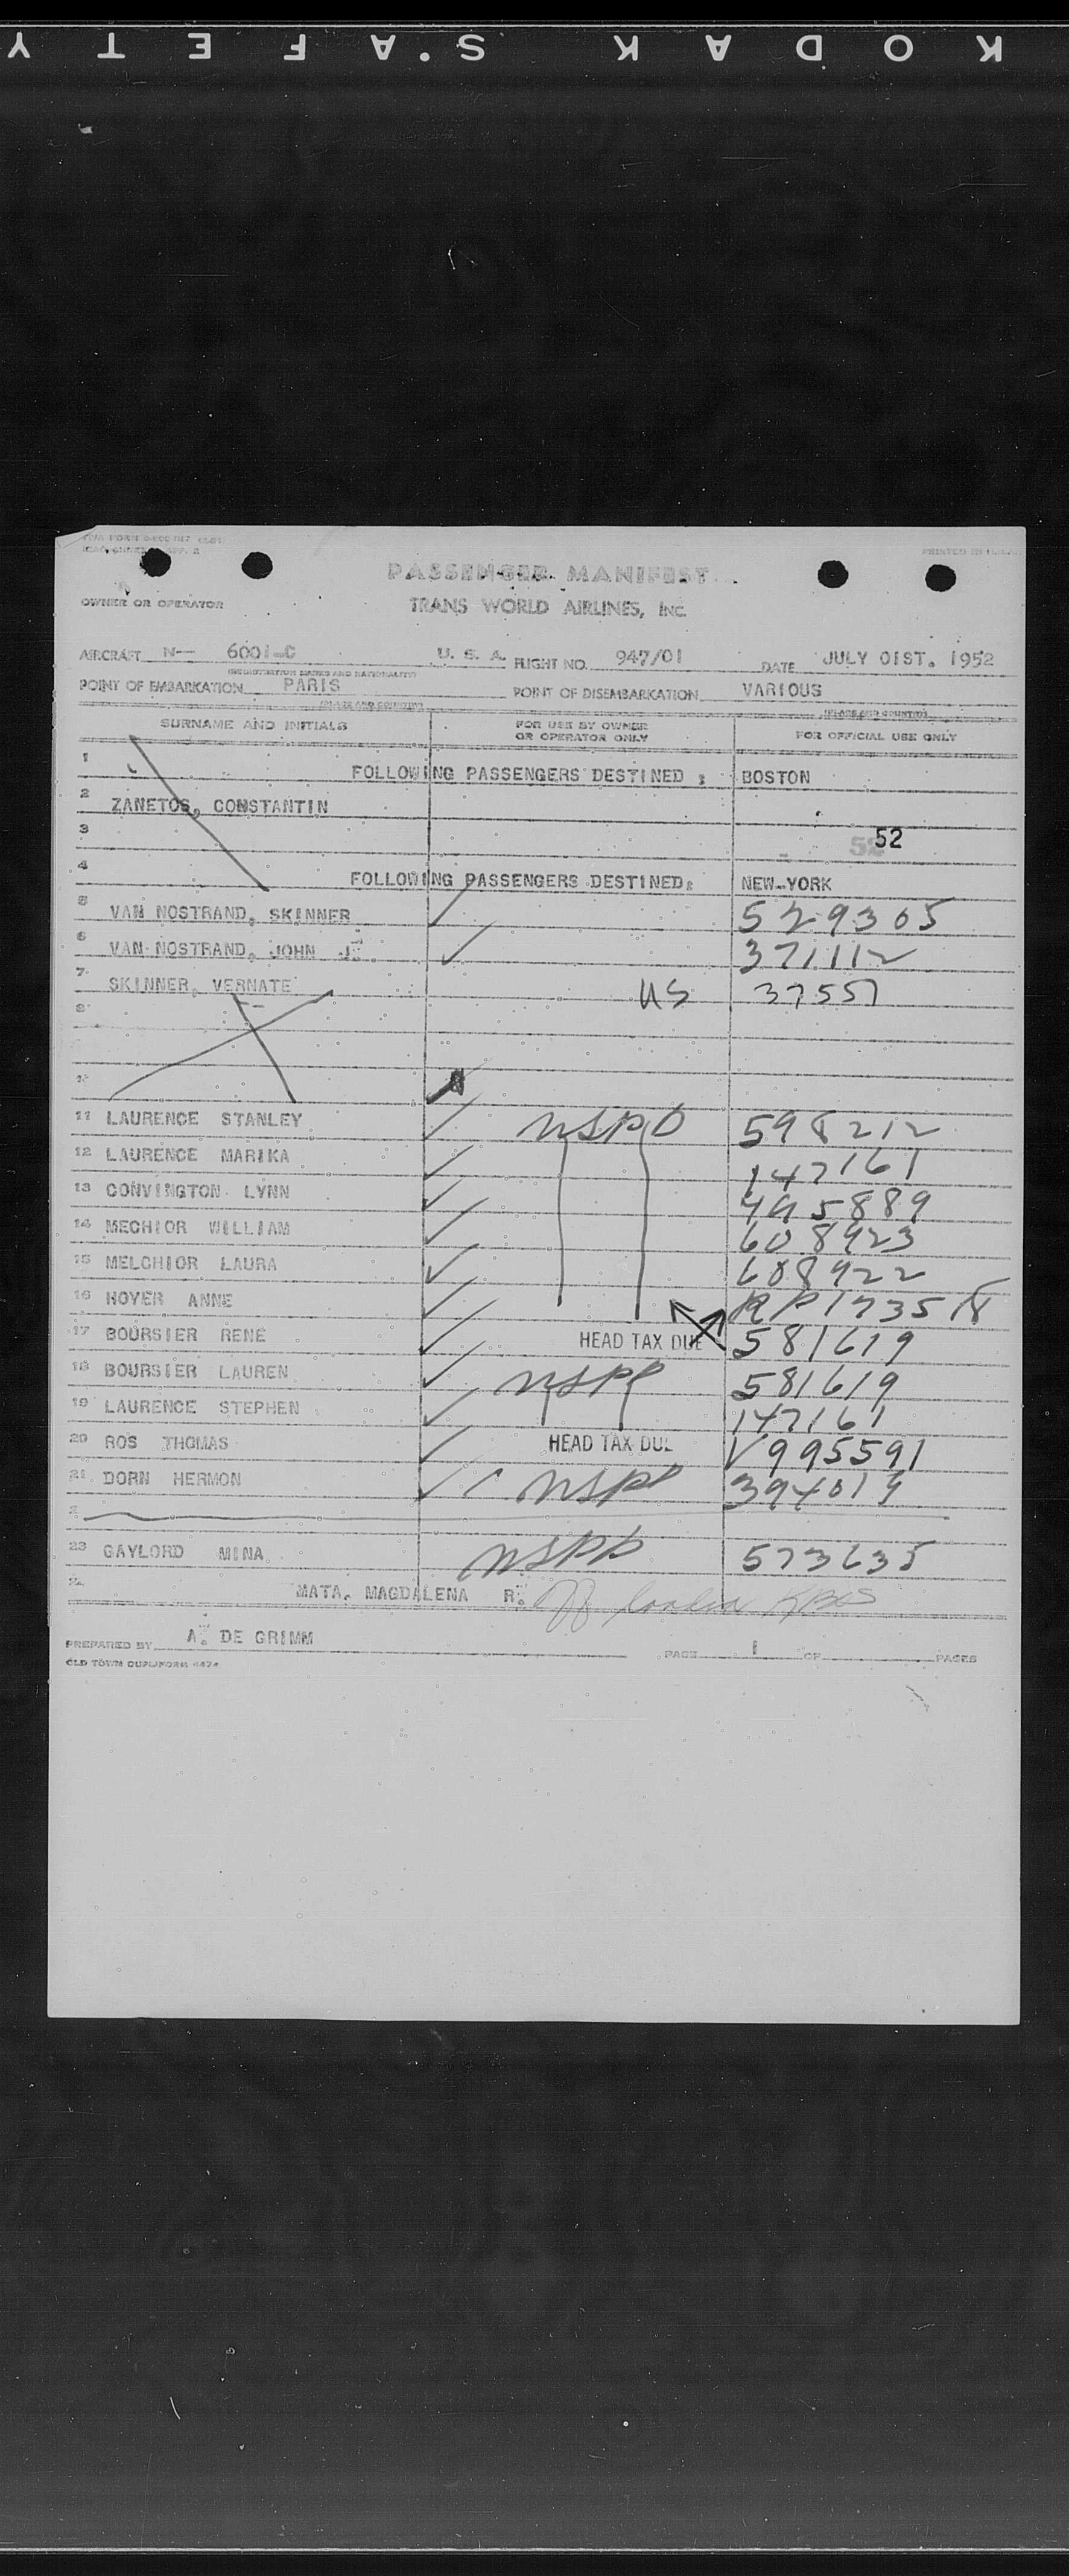 KODAK S'AFETY
PRINTED IN U.S.A.
PASSENGER MANIFEST
OWNER OR OPERATOR TRANS WORLD AIRLINES, INC.
AIRCRAFT N— 6001-C U. S. A. FLIGHT NO. 947/01 DATE JULY 01ST. 1952
(REGISTRATION MARKS AND NATIONALITY)
POINT OF EMBARKATION PARIS POINT OF DISEMBARKATION VARIOUS
(PLACE AND COUNTRY) (PLACE AND COUNTRY)
SURNAME AND INITIALS FOR USE BY OWNER OR OPERATOR ONLY FOR OFFICIAL USE ONLY
1 FOLLOWING PASSENGERS DESTINED : BOSTON
2 ZANETOS, CONSTANTIN
3 52 52
4 FOLLOWING PASSENGERS DESTINED: NEW-YORK
5 VAN NOSTRAND, SKINNER 529305
6 VAN NOSTRAND, JOHN J. 371112
7 SKINNER, VERNATE US 37557
8
11 LAURENCE STANLEY NSPD 598212
12 LAURENCE MARIKA 147161
13 CONVINGTON LYNN 495889
14 MECHIOR WILLIAM 608923
15 MELCHIOR LAURA 608922
16 HOYER ANNE RP1735
17 BOURSIER RENE HEAD TAX DUE 581619
18 BOURSIER LAUREN NSPP 581619
19 LAURENCE STEPHEN 147161
20 ROS THOMAS HEAD TAX DUE V995591
21 DORN HERMON NSPP 394019
23 GAYLORD MINA NSPP 573635
MATA, MAGDALENA R.
PREPARED BY A. DE GRIMM PAGE 1 OF PAGES
OLD TOWN DUPLIFORM 4474